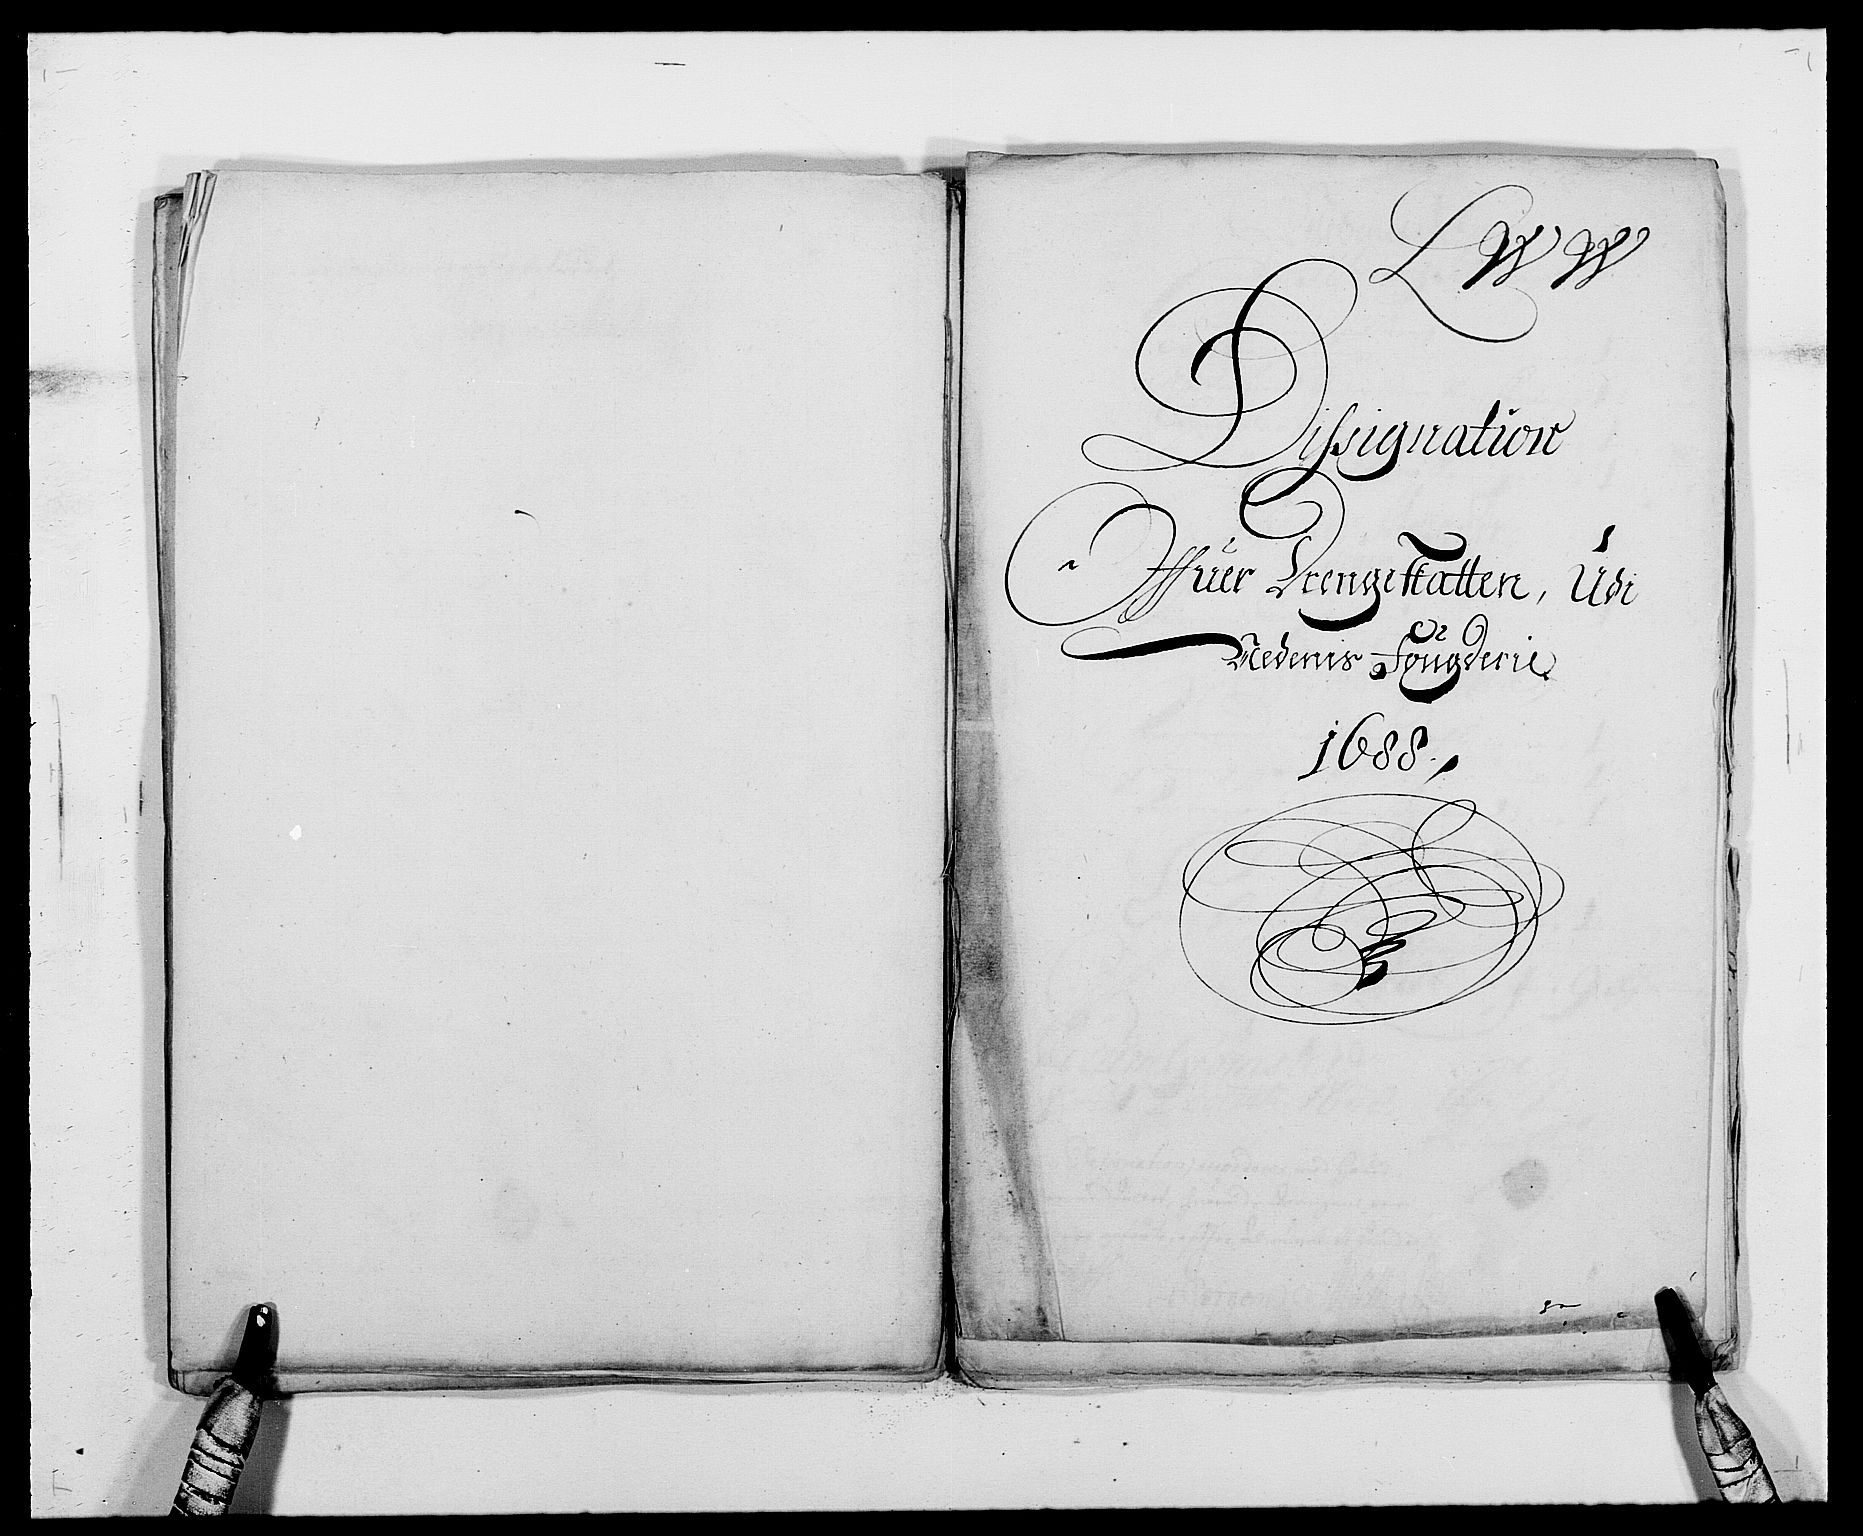 L W W
Dissignation
Offuer Drengeskatten, Udi
Nedenis Fougderie
1688.